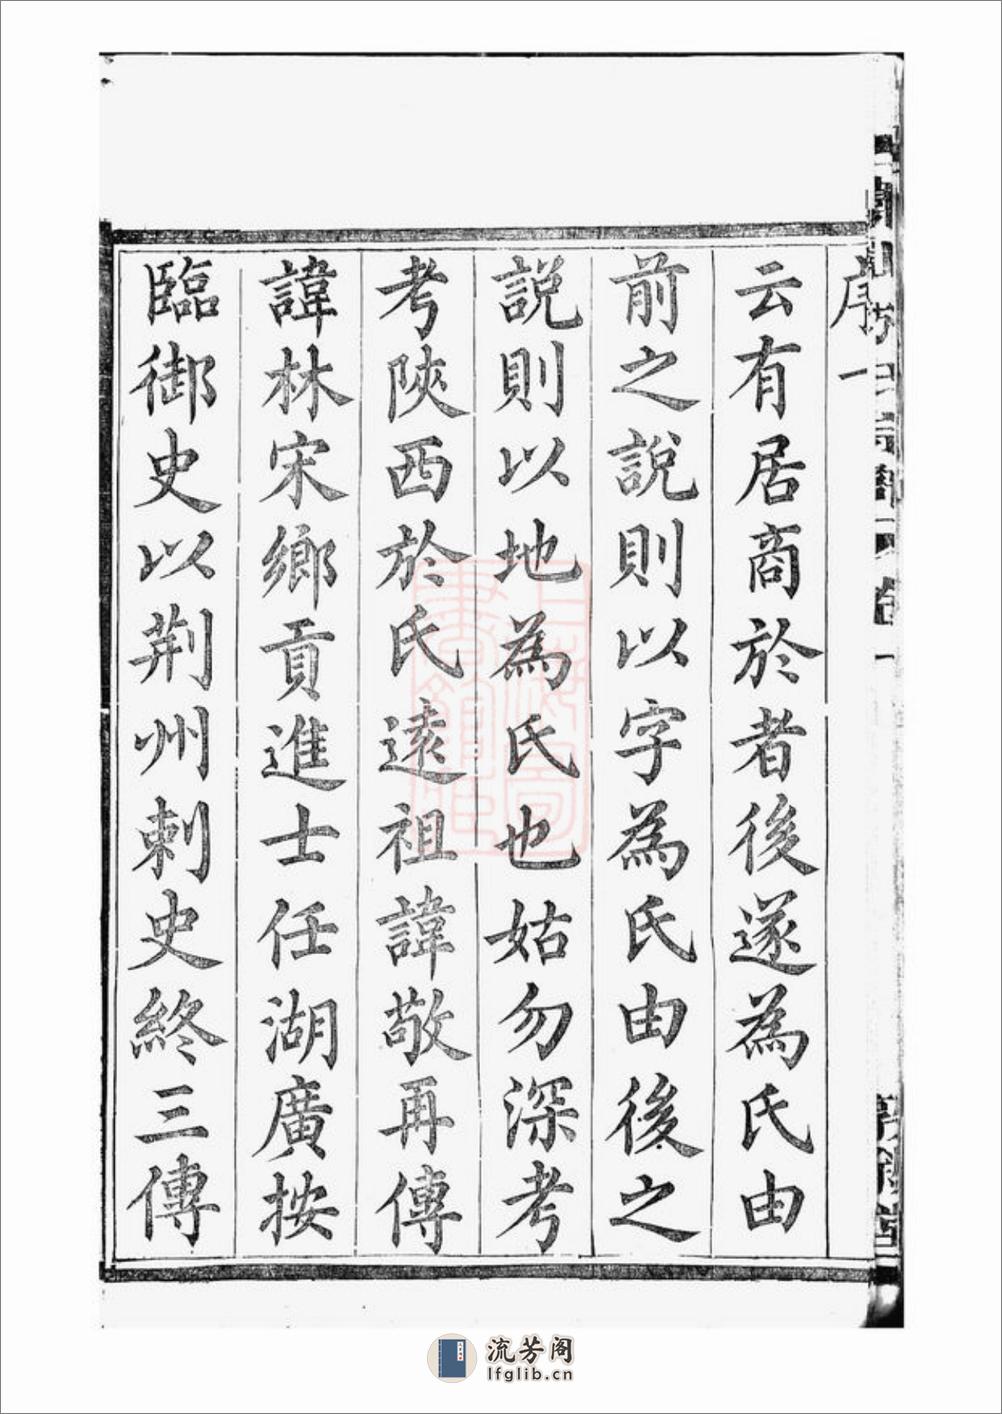 序一
云有居商於者後遂為氏由
前之說則以字為氏由後之
説則以地為氏也姑勿深考
考陝西於氏遠祖諱敬再傳
諱林宋鄉貢進士任湖廣按
臨御史以荆州刺史終三傳
流芳阁
lfglib.cn